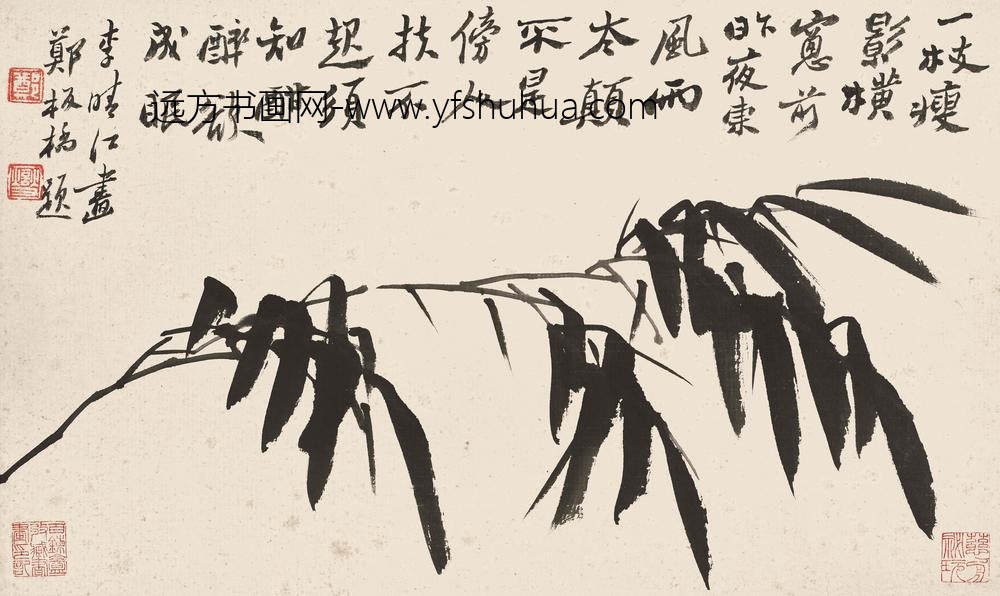 一枝瘦
影橫
窻前
昨夜東
風雨
太顛
不是
傍人
扶不
起須
知酣
醉欲
成眠
李晴江畫
鄭板橋題
远方书画网-www.yfshuhua.com